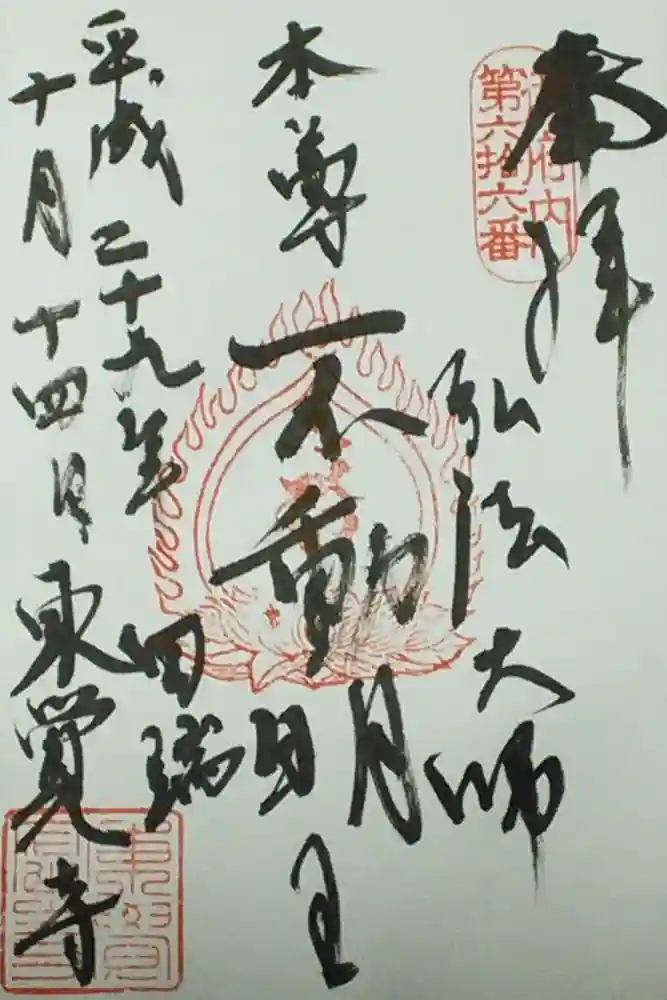 奉拝
御府内
第六拾六番
弘法大師
本尊
不動明王
平成二十九年
十月十四日
田端
東覺寺